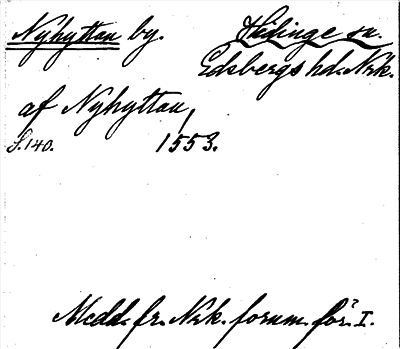 Nyhyttan by. Hidinge sn.
Edsbergs hd. Nrk.
af Nyhyttan,
f. 140. 1553.
Medd. fr. Nrk. fornm. för. I.